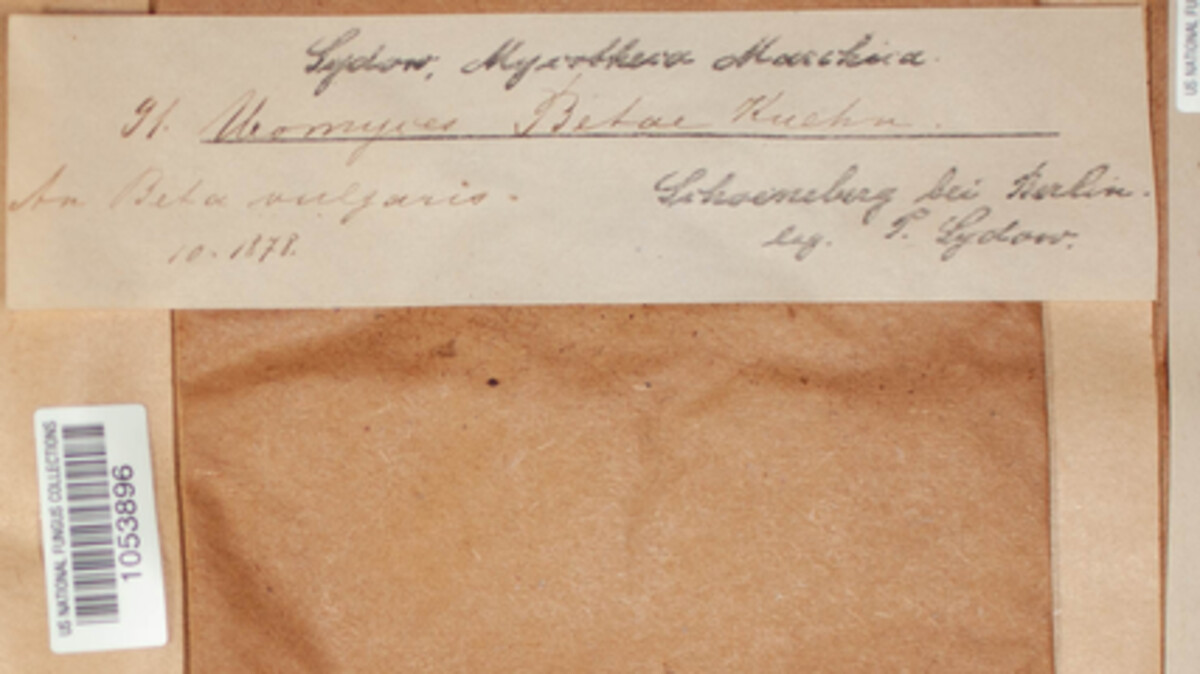 Sydow, Mycotheca Marchica.
91. Uromyces Betae Kuehn.
An Beta vulgaris.
10. 1878.
Schoeneberg bei Berlin.
leg. P. Sydow.
US NATIONAL FUNGUS COLLECTIONS
1053896
US NATIONAL FU